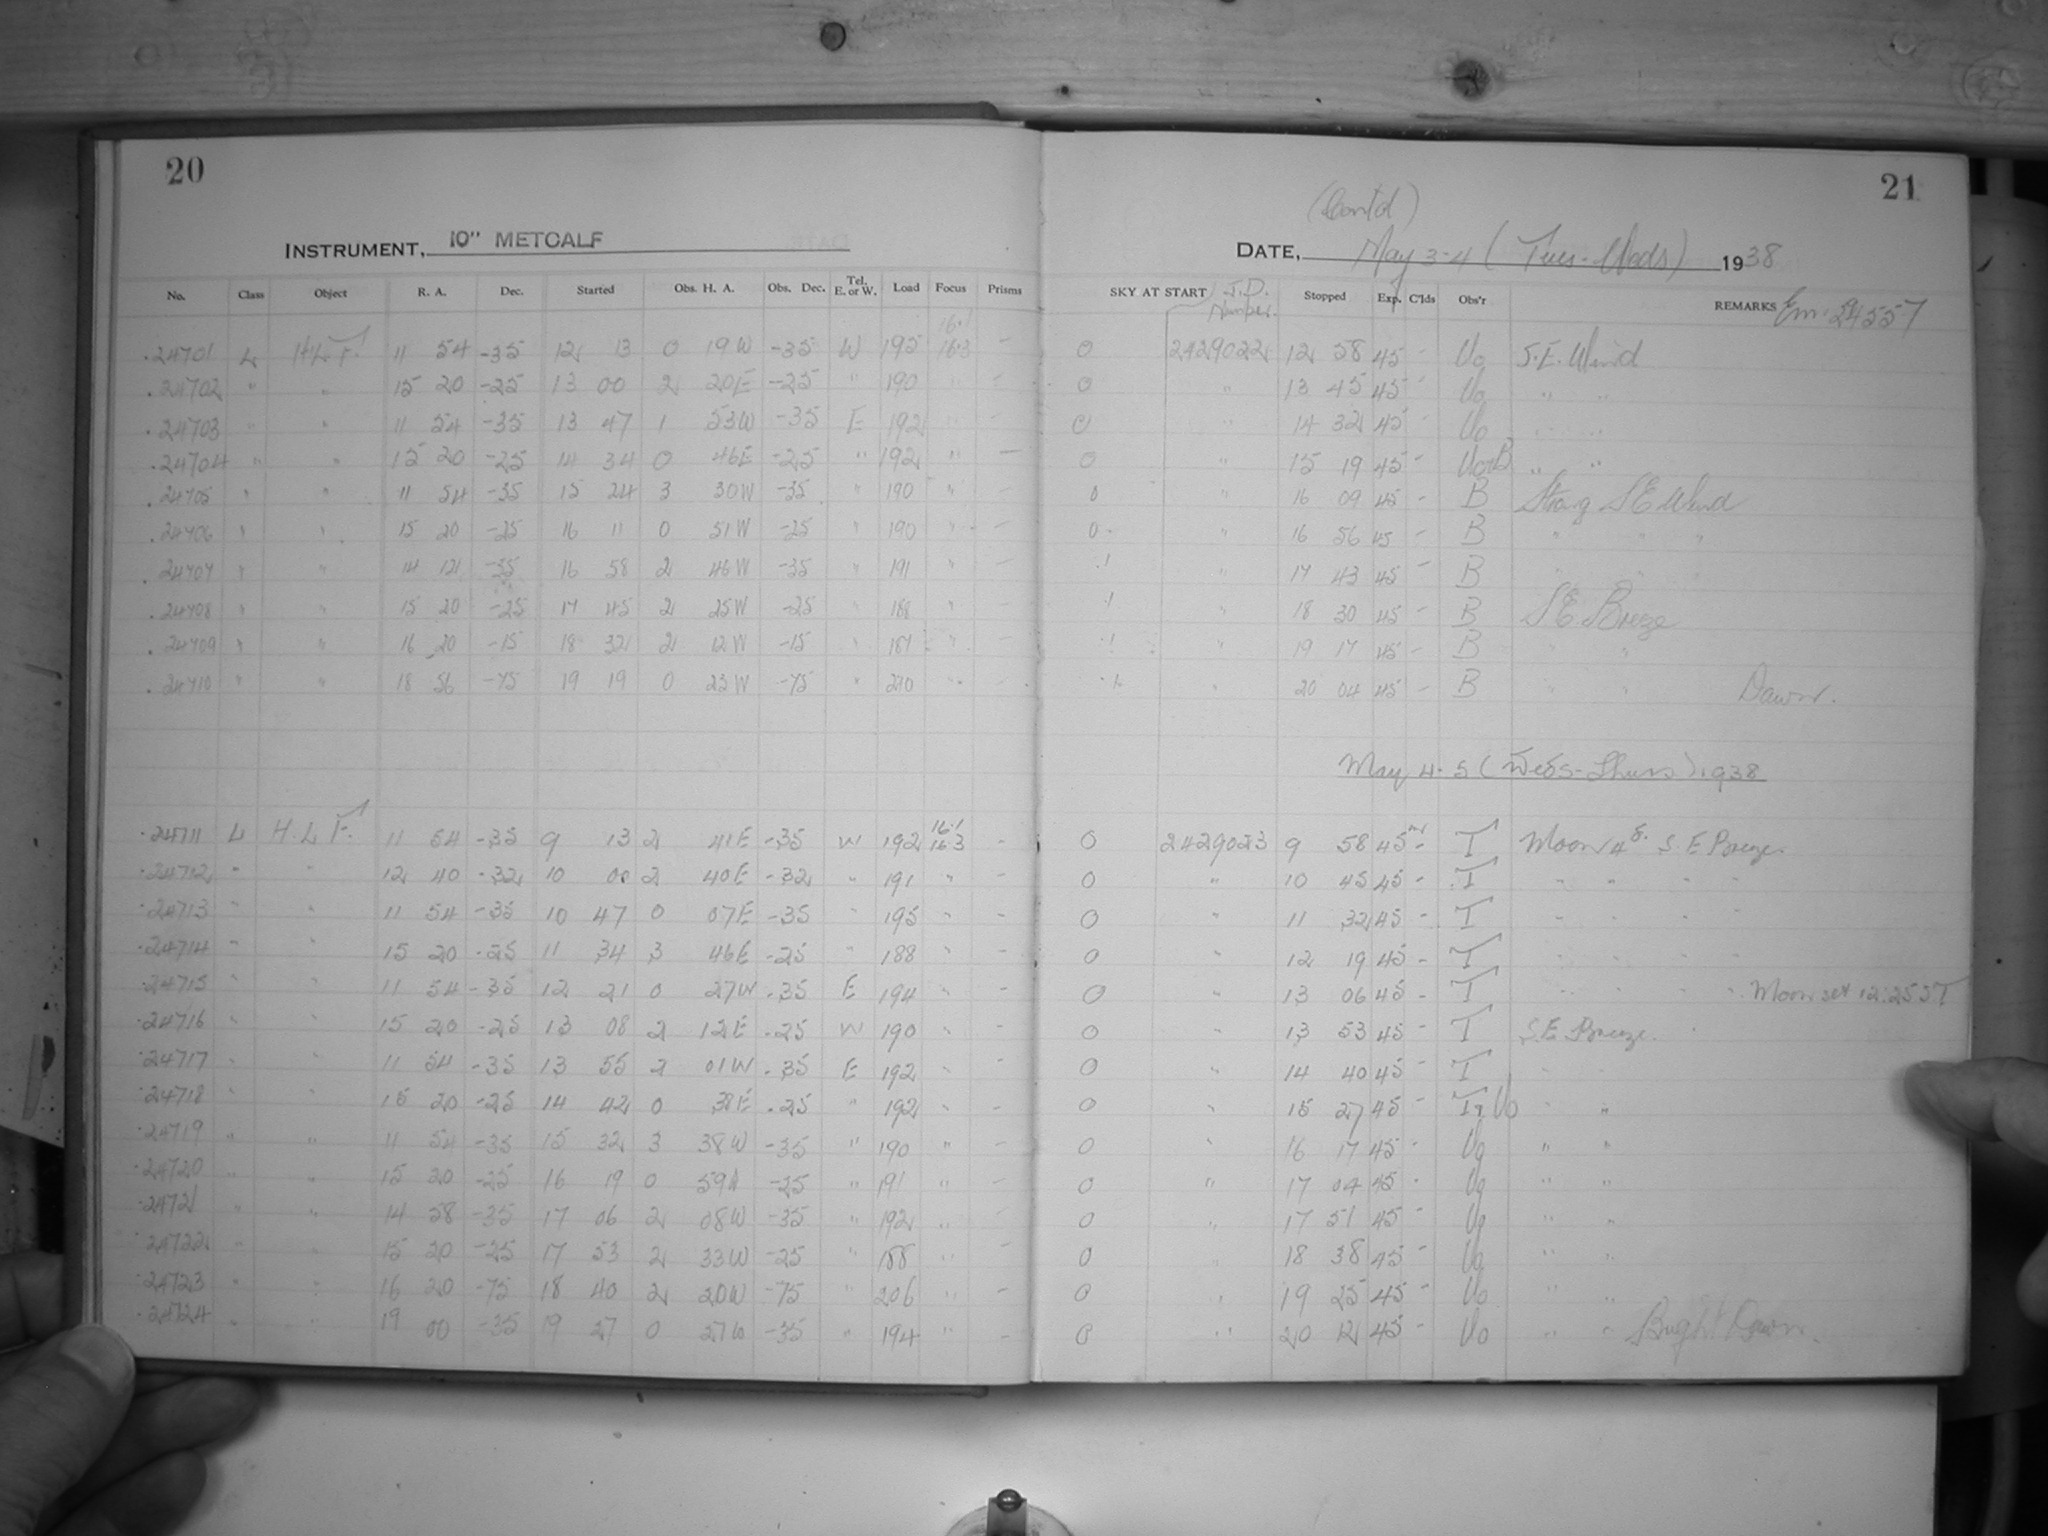 20
INSTRUMENT, 10" METCALF
No. Class Object R. A. Dec. Started Obs. H. A. Obs. Dec. Tel. E. or W. Load Focus Prisms
.24701 L H.L.F. 11 54 -35 12 13 0 19W -35 W 195 16.1 16.3 -
.24702 " " 15 20 -25 13 00 2 20E -25 " 190 " -
.24703 " " 11 54 -35 13 47 1 53W -35 E 192 " -
.24704 " " 15 20 -25 14 34 0 46E -25 " 192 " -
.24705 " " 11 54 -35 15 24 3 30W -35 " 190 " -
.24706 " " 15 20 -25 16 11 0 51W -25 " 190 " -
.24707 " " 14 12 -35 16 58 2 46W -35 " 191 " -
.24708 " " 15 20 -25 17 45 2 25W -25 " 188 " -
.24709 " " 16 20 -15 18 32 2 12W -15 " 187 " -
.24710 " " 18 56 -75 19 19 0 23W -75 " 210 " -
.24711 L H.L.F. 11 54 -35 9 13 2 41E -35 W 192 16.1 16.3 -
.24712 " " 12 40 -32 10 00 2 40E -32 " 191 " -
.24713 " " 11 54 -35 10 47 0 07E -35 " 195 " -
.24714 " " 15 20 -25 11 34 3 46E -25 " 188 " -
.24715 " " 11 54 -35 12 21 0 27W -35 E 194 " -
.24716 " " 15 20 -25 13 08 2 12E -25 W 190 " -
.24717 " " 11 54 -35 13 55 2 01W -35 E 192 " -
.24718 " " 15 20 -25 14 42 0 38E -25 " 192 " -
.24719 " " 11 54 -35 15 32 3 38W -35 " 190 " -
.24720 " " 15 20 -25 16 19 0 59W -25 " 191 " -
.24721 " " 14 58 -35 17 06 2 08W -35 " 192 " -
.24722 " " 15 20 -25 17 53 2 33W -25 " 188 " -
.24723 " " 16 20 -75 18 40 2 20W -75 " 206 " -
.24724 " " 19 00 -35 19 27 0 27W -35 " 194 " -
21
(Contd)
DATE, May 3-4 (Tues-Weds) 1938
SKY AT START J.D. Number. Stopped Exp. C'lds Obs'r REMARKS Em. 24557
0 2429022 12 58 45 - Vo S.E. Wind
0 " 13 45 45 - Vo " "
0 " 14 32 45 - Vo " "
0 " 15 19 45 - Vo+B " "
0 " 16 09 45 - B Strong S E Wind
0 " 16 56 45 - B " " "
.1 " 17 43 45 - B " " "
.1 " 18 30 45 - B S E Breeze
.1 " 19 17 45 - B " "
" 20 04 45 - B " " Dawn.
May 4-5 (Weds-Thurs) 1938
0 2429023 9 58 45 - T Moon 4 S. E Breeze.
0 " 10 45 45 - T " " " "
0 " 11 32 45 - T " " " "
0 " 12 19 45 - T " " " "
0 " 13 06 45 - T " " " " Moon set 12:25 ST
0 " 13 53 45 - T S.E Breeze.
0 " 14 40 45 - T " "
0 " 15 27 45 - T+Vo " "
0 " 16 17 45 - Vo " "
0 " 17 04 45 - Vo " "
0 " 17 51 45 - Vo " "
0 " 18 38 45 - Vo " "
0 " 19 25 45 - Vo " "
0 " 20 12 45 - Vo " " Bright Dawn.